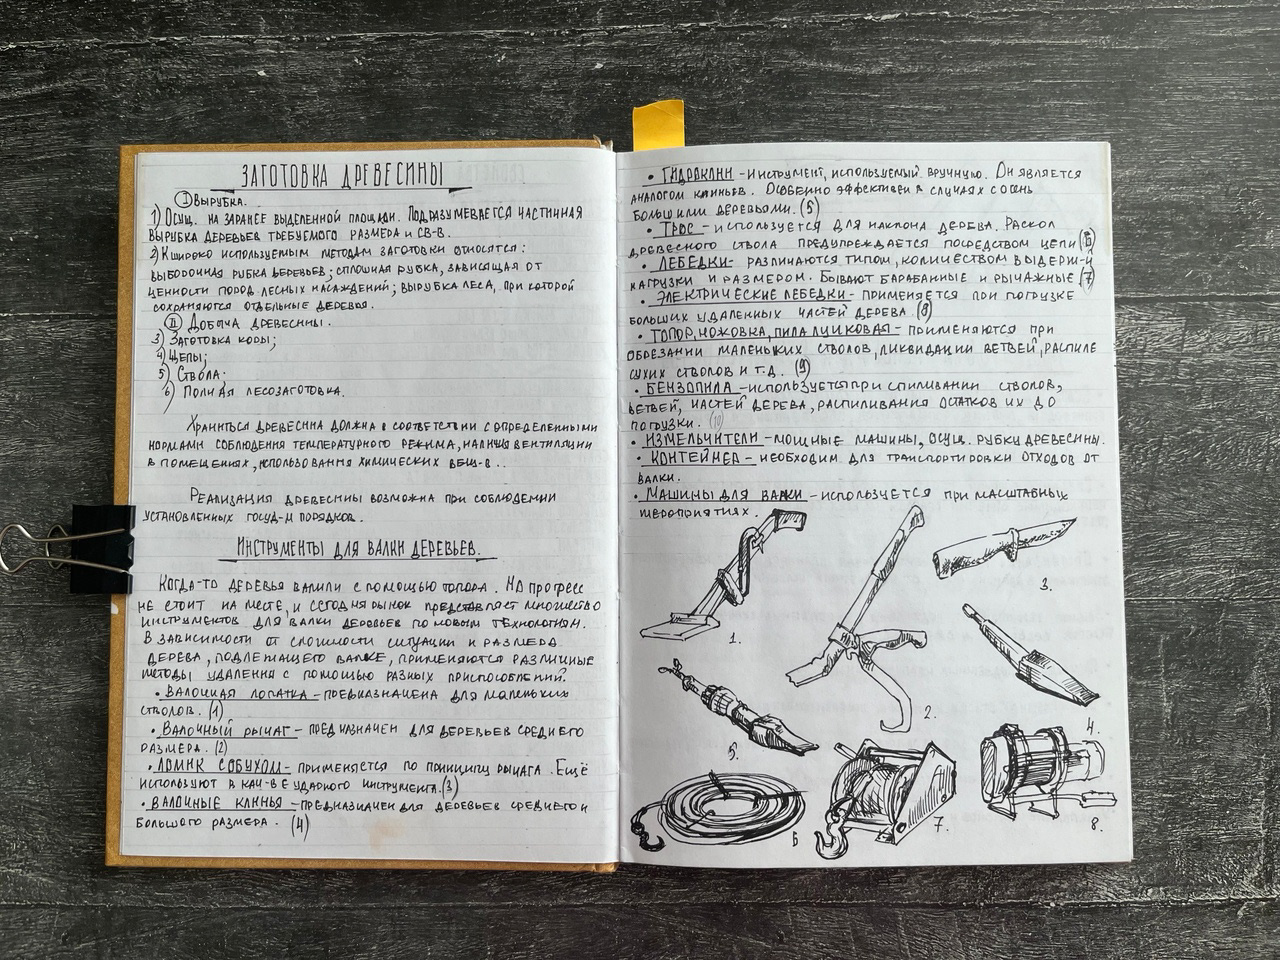 ЗАГОТОВКА ДРЕВЕСИНЫ
I Вырубка.
1) Осущ. на заранее выделенной площади. Подразумевается частичная
вырубка деревьев требуемого размера и св-в.
2) К широко используемым методам заготовки относятся:
выборочная рубка деревьев; сплошная рубка, зависящая от
ценности пород лесных насаждений; вырубка леса, при которой
сохраняются отдельные деревья.
II Добыча древесины.
3) Заготовка коры;
4) Щепы;
5) Ствола;
6) Полная лесозаготовка.
Храниться древесина должна в соответствии с определенными
нормами соблюдения температурного режима, наличия вентиляции
в помещениях, использования химических вещ-в..
Реализация древесины возможна при соблюдении
установленных госуд-м порядков.
Инструменты для валки деревьев.
Когда-то деревья валили с помощью топора. Но прогресс
не стоит на месте, и сегодня рынок представляет множество
инструментов для валки деревьев по новым технологиям.
В зависимости от сложности ситуации и размера
дерева, подлежащего валке, применяются различные
методы удаления с помощью разных приспособлений.
• Валочная лопатка - предназначена для маленьких
стволов. (1)
• Валочный рычаг - предназначен для деревьев среднего
размера. (2)
• Ломик с обухом - применяется по принципу рычага. Ещё
используют в кач-ве ударного инструмента. (3)
• Валочные клинья - предназначен для деревьев среднего и
большого размера. (4)
• Гидроклин - инструмент, используемый вручную. Он является
аналогом клиньев. Особенно эффективен в случаях с очень
большими деревьями. (5)
• Трос - используется для наклона дерева. Раскол
древесного ствола предупреждается посредством цепи (6)
• Лебедки - различаются типом, количеством выдерж-й
нагрузки и размером. Бывают барабанные и рычажные (7)
• Электрические лебедки - применяется при погрузке
больших удаленных частей дерева (8)
• Топор, ножовка, пила цепная - применяются при
обрезании маленьких стволов, ликвидации ветвей, распиле
сухих стволов и т.д. (9)
• Бензопила - используется при спиливании стволов,
ветвей, частей дерева, распиливания остатков их до
погрузки. (10)
• Измельчители - мощные машины, осущ. рубку древесины.
• Контейнер - необходим для транспортировки отходов от
валки.
• Машины для валки - используется при масштабных
мероприятиях.
1.
2.
3.
4.
5.
6
7.
8.